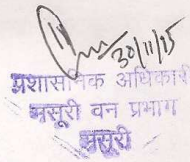 30/11/15
प्रशासनिक अधिकारी
मसूरी वन प्रभाग
मसूरी